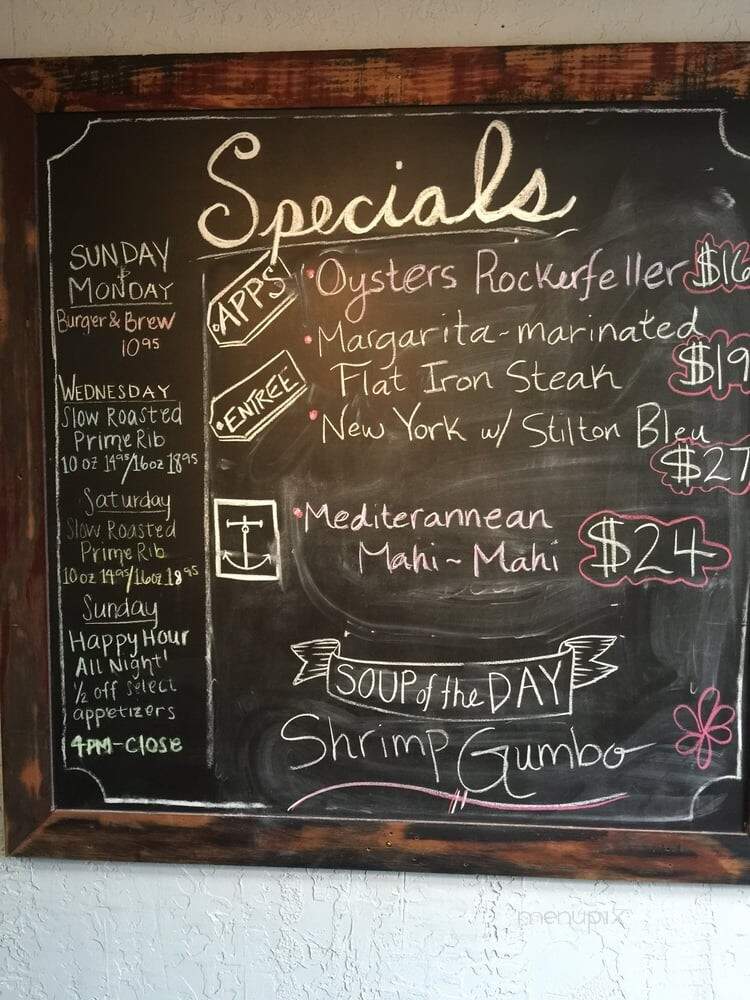 Specials
SUNDAY
&
MONDAY
Burger & Brew
10 95
WEDNESDAY
Slow Roasted
Prime Rib
10 oz 14 95/16oz 18 95
Saturday
Slow Roasted
Prime Rib
10 oz 14 95/16oz 18 95
Sunday
Happy Hour
All Night!
1/2 off select
appetizers
4PM-Close
APPS
• Oysters Rockerfeller $16
• Margarita-marinated
Flat Iron Steak $19
ENTREE
• New York w/ Stilton Bleu
$27
• Mediterannean
Mahi~Mahi $24
SOUP of the DAY
Shrimp Gumbo
menupix